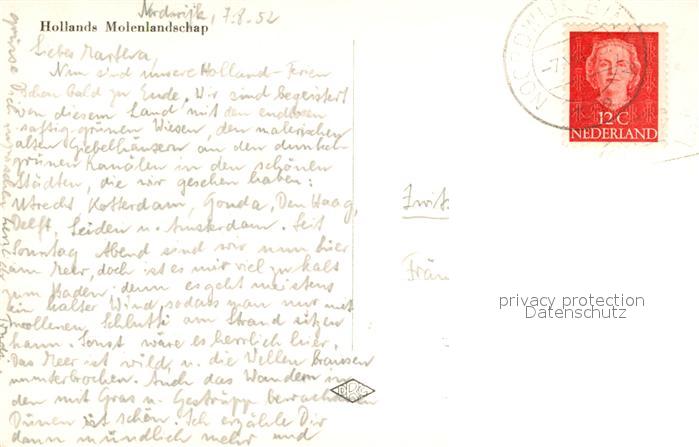 Nordwijk, 7.8.52
Hollands Molenlandschap
Liebes Martheva,
Nun sind unsere Holland-Ferien
schon bald zu Ende. Wir sind begeistert
von diesem Land mit den endlosen
saftig-grünen Wiesen, den malerischen
alten Giebelhäusern an den dunkel-
grünen Kanälen in den schönen
Städten, die wir gesehen haben:
Utrecht, Rotterdam, Gouda, Den Haag,
Delft, Leiden u. Amsterdam. Seit
Sonntag Abend sind wir nun hier
am Meer, doch ist es mir viel zu kalt
zum Baden, denn es geht meistens
ein kalter Wind, sodass man nur mit
wollenen Schlutti am Strand sitzen
kann. Sonst wäre es herrlich hier.
Das Meer ist wild u. die Wellen brausen
ununterbrochen. Auch das Wandern in
den mit Gras u. Gestrüpp bewachsenen
Dünen ist schön. Ich erzähle Dir
dann mündlich mehr und
grüsse Dich herzlich
NOORDWIJK
12 C
NEDERLAND
Frän
privacy protection
Datenschutz